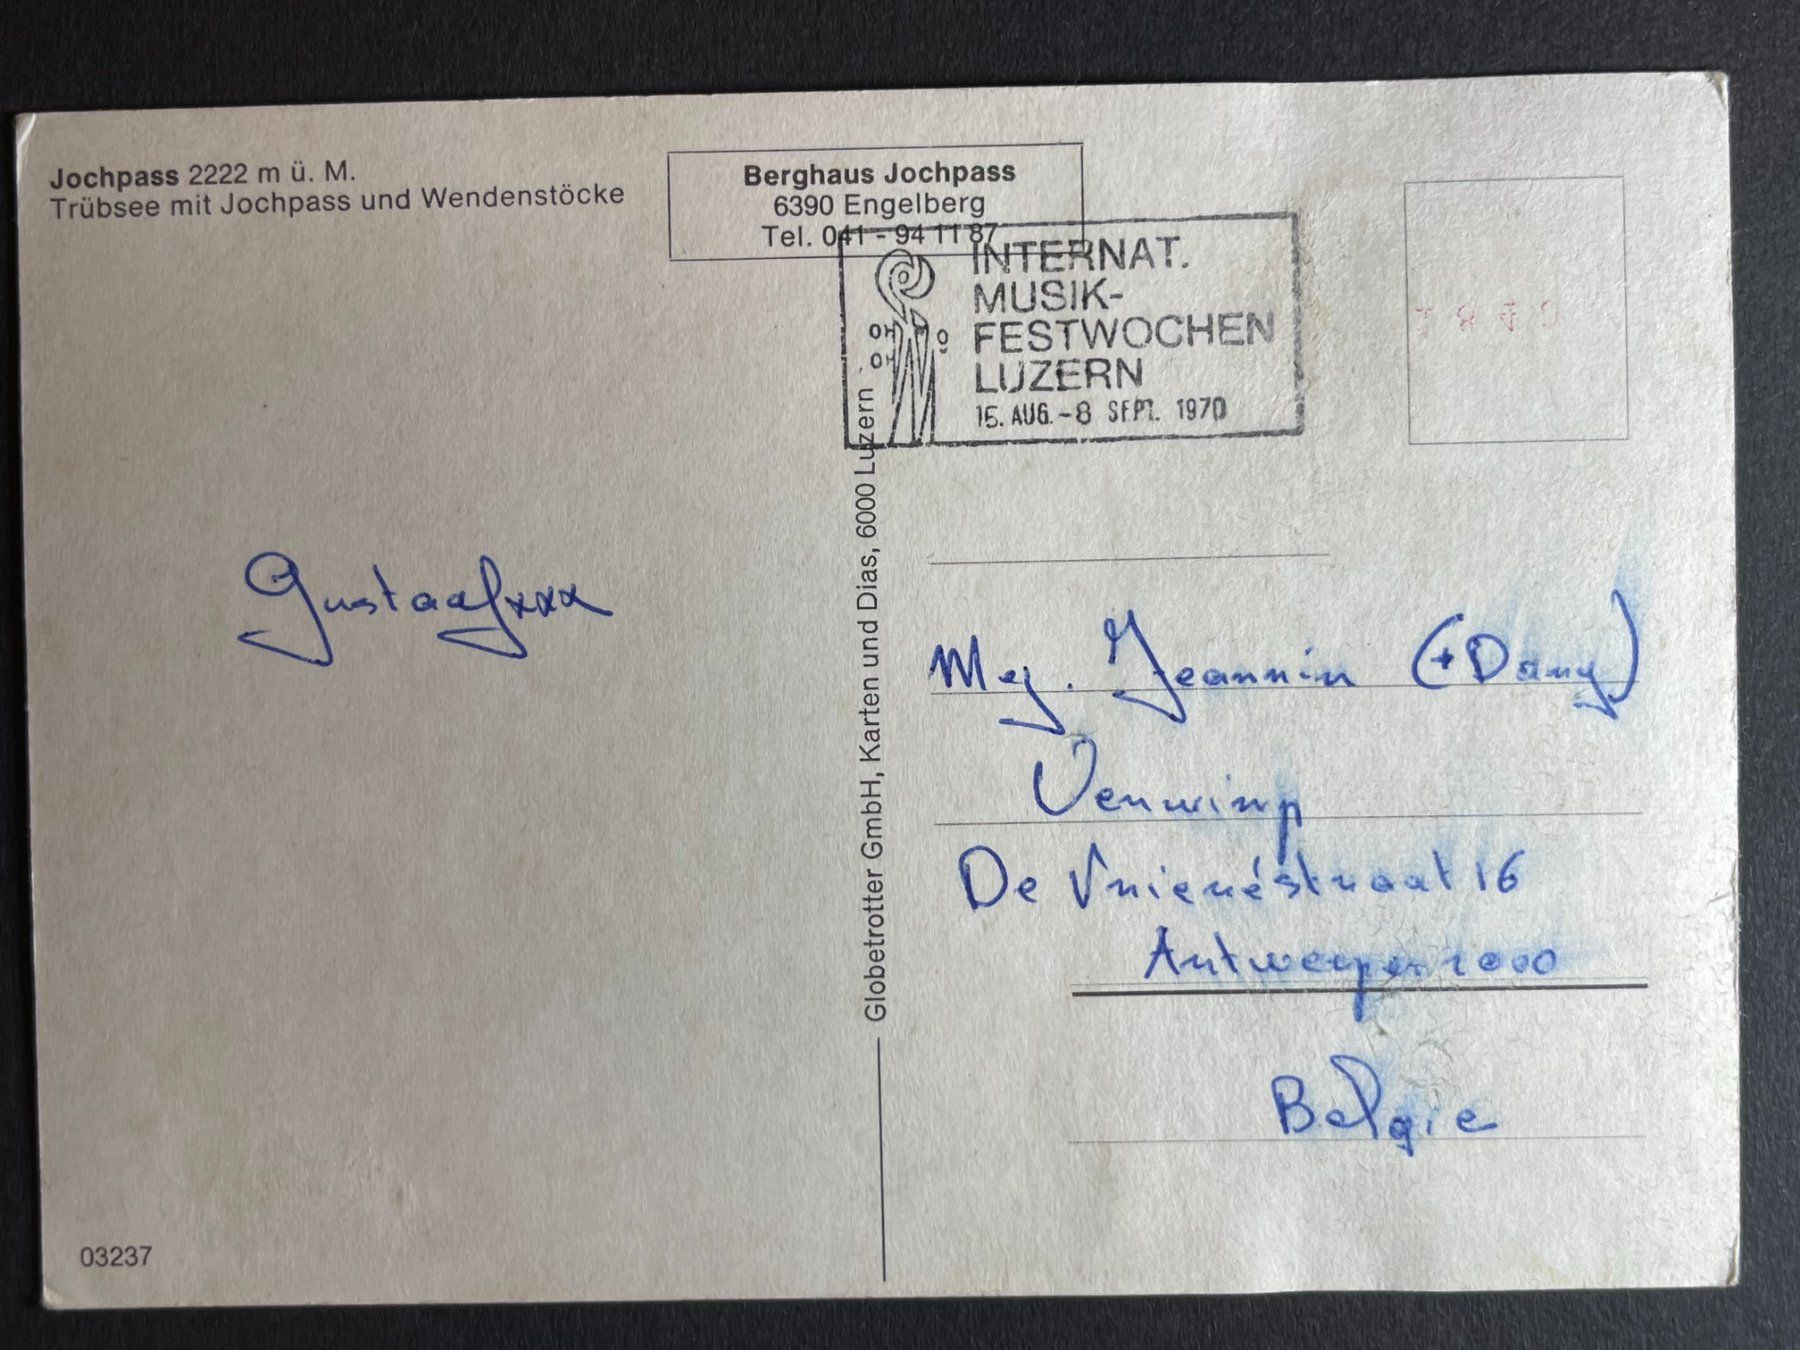 Jochpass 2222 m ü. M.
Trübsee mit Jochpass und Wendenstöcke
Berghaus Jochpass
6390 Engelberg
Tel. 041 - 94 11 87
INTERNAT.
MUSIK-
FESTWOCHEN
LUZERN
15. AUG. - 8 SEPT. 1970
Globetrotter GmbH, Karten und Dias, 6000 Luzern
Gustaaf xxx
Mej. Jeannin (+ Dany)
De 16
Antwerpen 2000
Belgie
03237